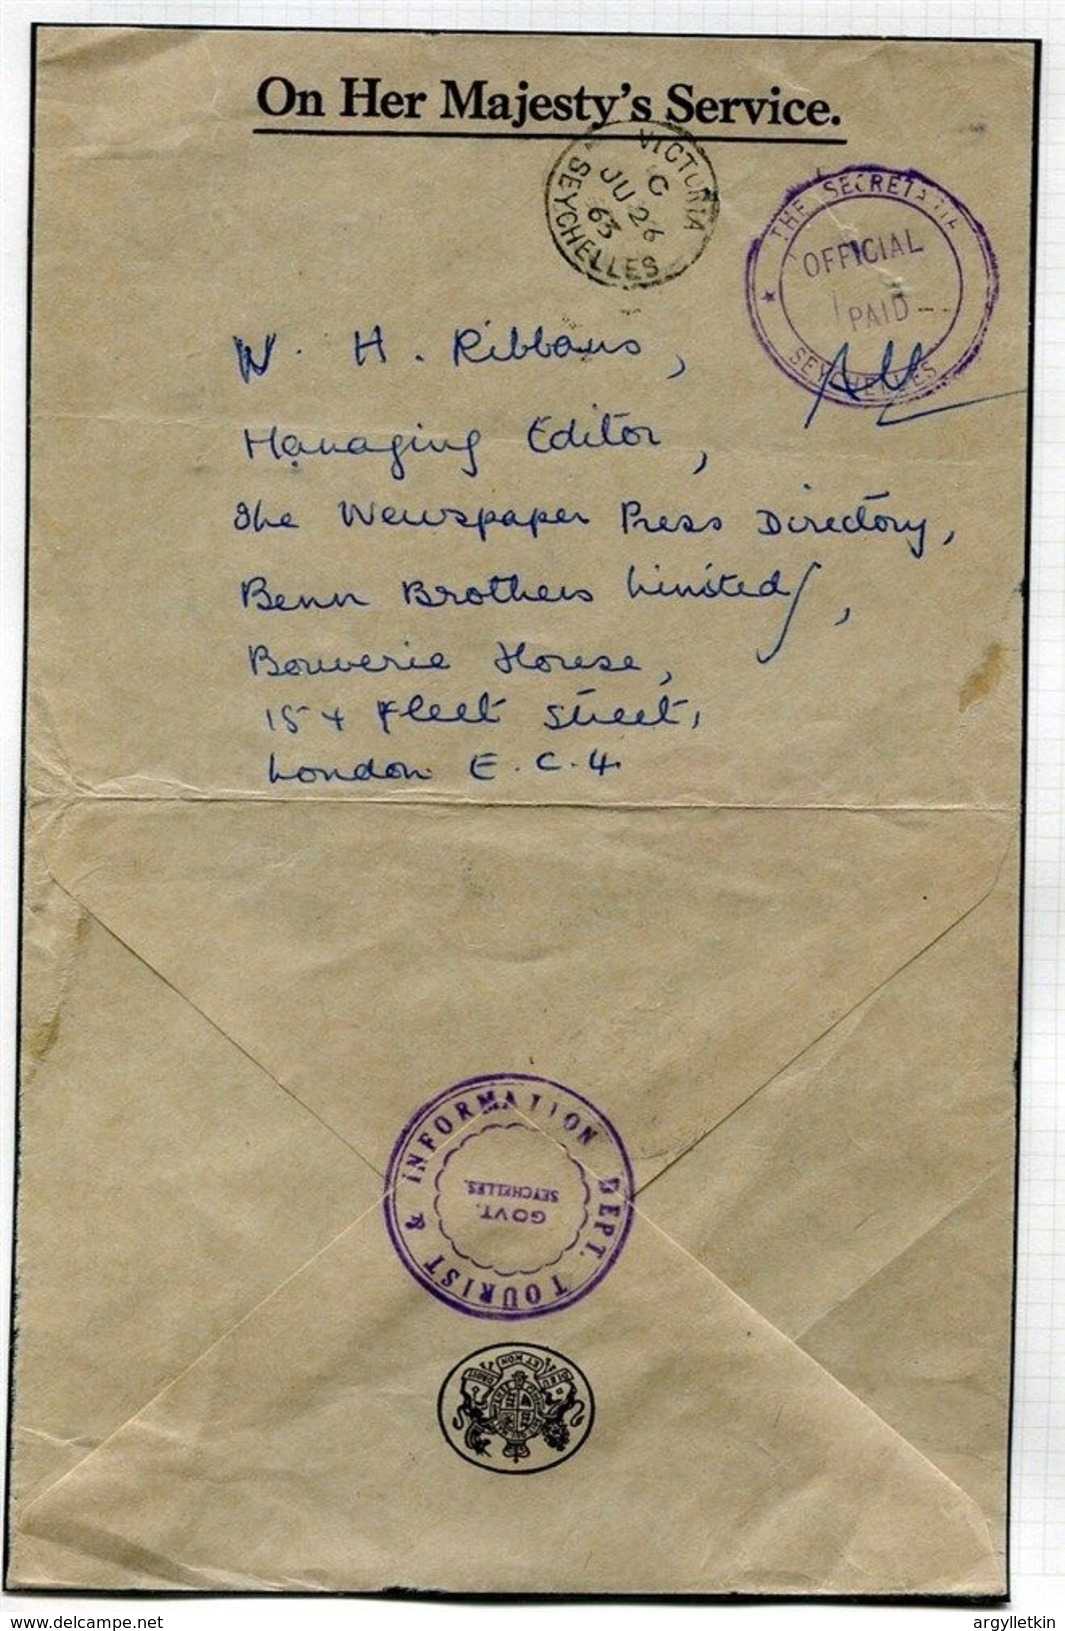 On Her Majesty's Service.
VICTORIA
C
JU 26
63
SEYCHELLES
OFFICIAL
PAID
SEYCHELLES
W. H. Ribbans,
Managing Editor,
The Newspaper Press Directory,
Benn Brothers Limited,
Bouverie House,
154 Fleet Street,
London E.C.4.
INFORMATION DEPT. TOURIST &
GOVT.
SEYCHELLES.
DIEU ET MON DROIT
www.delcampe.net
argylletkin